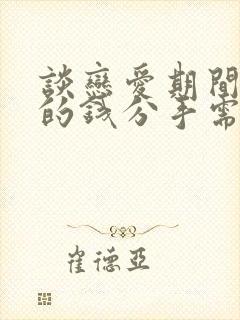 談戀愛期間
的錢分手需
崔德亞